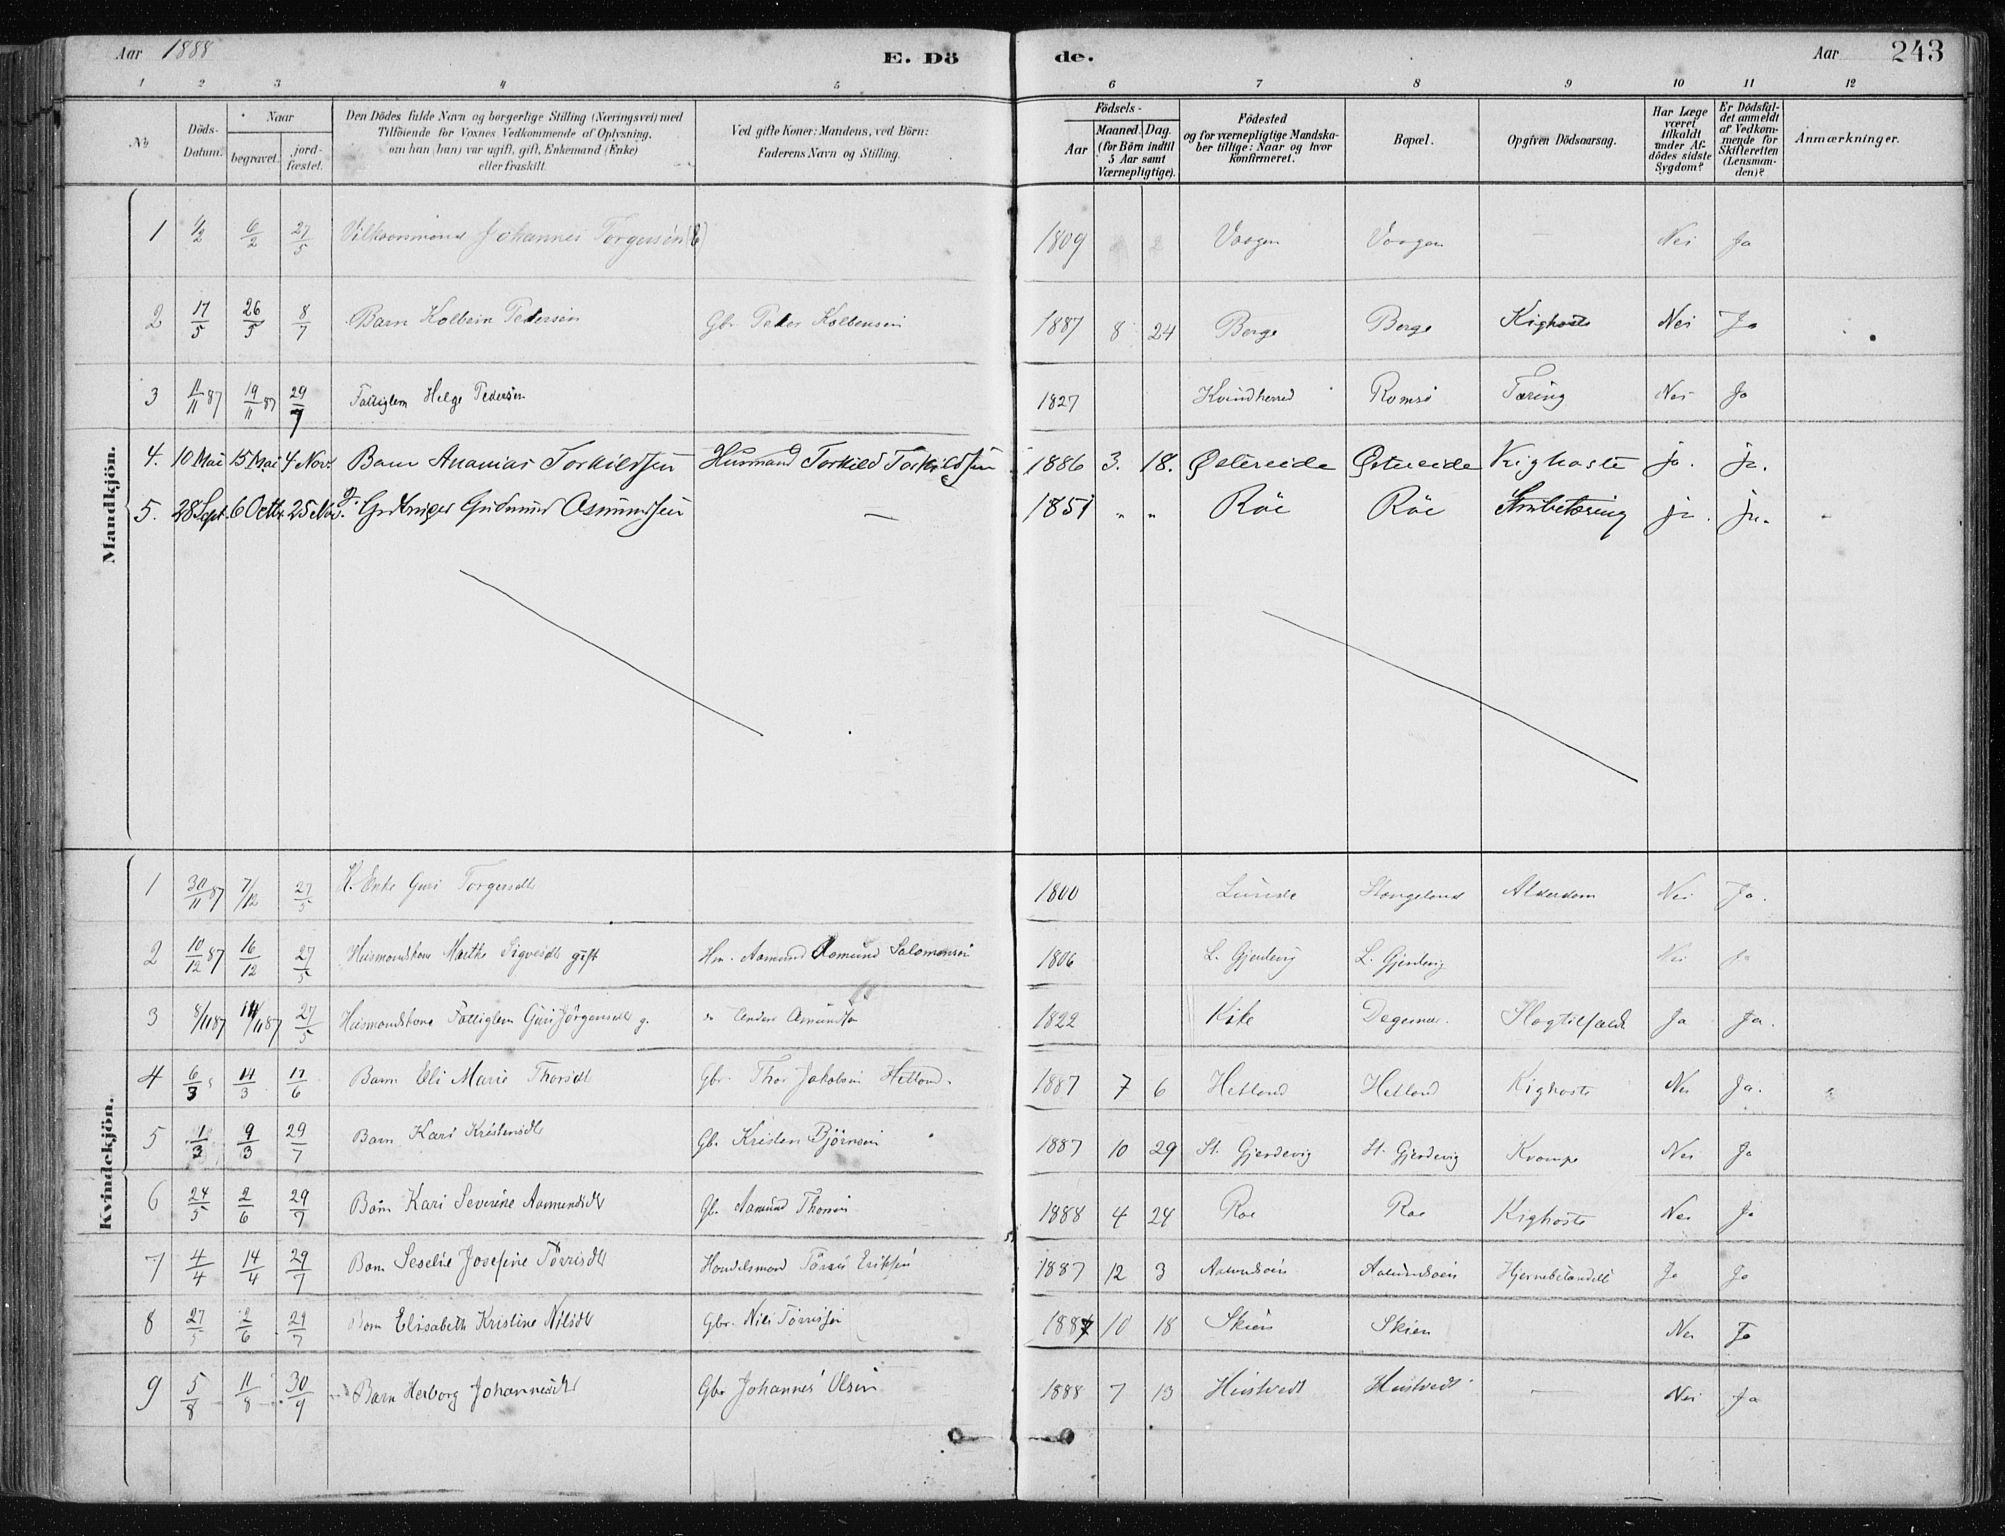 Aar 1888 E. Dö de. Aar 243
1 2 3 4 5 6 7 8 9 10 11 12
No Döds-Datum. Naar begravet. jord-fæstet. Den Dödes fulde Navn og borgerlige Stilling (Næringsvei) med Tilföiende for Voxnes Vedkommende af Oplysning, om han (hun) var ugift, gift, Enkemand (Enke) eller fraskilt. Ved gifte Koner: Mandens, ved Börn: Faderens Navn og Stilling. Födsels- Aar Maaned. Dag. (for Börn indtil 5 Aar samt Værnepligtige). Födested og for værnepligtige Mandska-ber tillige: Naar og hvor Konfirmeret. Bopæl. Opgiven Dödsaarsag. Har Læge været tilkaldt under Af-dödes sidste Sygdom? Er Dödsfal-det anmeldt af Vedkom-mende for Skifteretten (Lensman-den)? Anmærkninger.
Mandkjön.
1 1/2 6/2 27/5 Vilkaarsmand Johannes Torgersen (E) 1809 Vaagen Vaagen — Nei Ja
2 17/5 26/5 8/7 Barn Kolbein Pedersen Gbr. Peder Kolbensen 1887 8 24 Borge Borge Kighoste Nei Ja
3 11/11 87 19/11 87 29/7 Fattiglem Helge Pedersen 1827 Kvindherred Romsö Tæring Nei Ja
4. 10 Mai 15 Mai 4 Nov. Barn Ananias Torkildsen Husmand Torkild Torkildsen 1886 3. 18. Östereide Östereide Kighoste ja. ja.
5. 28 Sept. 6 Octbr. 25 Nov. g. Grdbruger Gudmund Asmundsen — 1851 " " Röe Röe Strubetæring ja. ja.
Kvindekjön.
1 30/11 87 7/12 27/5 K. Enke Guri Torgersdtr 1800 Lunde Haugeland Alderdom Nei Ja.
2 10/12 87 16/12 27/5 Husmandskone Marthe Sigvesdtr gift Hm. Aamund Aamund Salomonsen 1806 L. Gjerdevig L. Gjerdevig Nei Ja
3 8/11 87 14/11 87 27/5 Husmandskone Fattiglem Guri Jörgensdtr g. " Anders Amundsen 1822 Kike Degernes. Slagtilfælde Ja Ja.
4 6/3 14/3 17/6 Barn Eli Marie Thorsdtr Gbr. Thor Jakobsen Hetland. 1887 7 6 Hetland Hetland Kighoste Nei Ja. "
5 1/3 9/3 29/7 Barn Kari Kristensdtr Gbr. Kristen Björnsen 1887 10 29 St. Gjerdevig St. Gjerdevig Krampe Nei Ja
6 24/5 2/6 29/7 Barn Kari Severine Aamundsdtr Gbr. Aamund Thorsen 1888 4 24 Roe Roe Kighoste Nei Ja
7 4/4 14/4 29/7 Barn Seselie Josefine Törrisdtr Handelsmand Törris Eriksen 1887 12 3 Aakundsöen Aakundsöen Hjernebetændelse Ja Ja
8 27/5 2/6 29/7 Barn Elisabeth Kristine Nilsdtr Gbr. Nils Törrisen 1887 10 18 Skien Skien Nei Ja
9 5/8 11/8 30/9 Barn Herborg Johannesdtr Gbr Johannes Olsen 1888 7 13 Hustvedt Hustvedt — Nei Ja